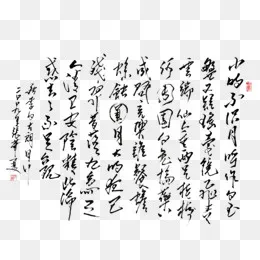 小时不识月呼作白玉
盘又疑瑶台镜飞在青
云端仙人垂两足桂树
何团团白兔捣药
成问言与谁餐蟾
蜍蚀圆影大明夜已
残羿昔落九乌天
人清且安阴精此沦
惑去去不足观
李白古朗月行